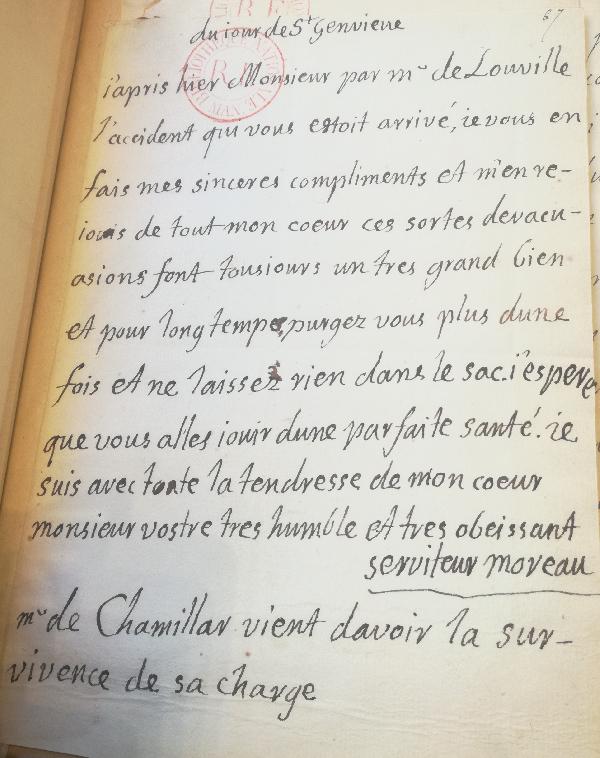 67
du iour de St Genvieve
i'apris hier Monsieur par mr de Louville
l'accident qui vous estoit arrivé, ie vous en
fais mes sinceres compliments et m'en re-
iouis de tout mon coeur ces sortes devacu-
asions font tousiours un tres grand bien
et pour long temps, purgez vous plus dune
fois et ne laissez rien dans le sac. i'espere
que vous alles iouir dune parfaite santé. ie
suis avec toute la tendresse de mon coeur
monsieur vostre tres humble et tres obeissant
serviteur moreau
mr de Chamillar vient davoir la sur-
vivence de sa charge